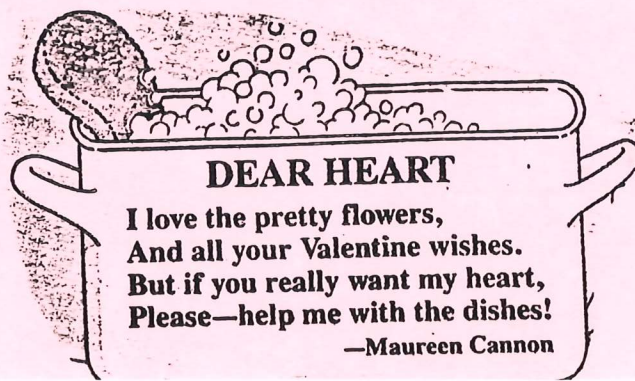 DEAR HEART
I love the pretty flowers,
And all your Valentine wishes.
But if you really want my heart,
Please—help me with the dishes!
—Maureen Cannon